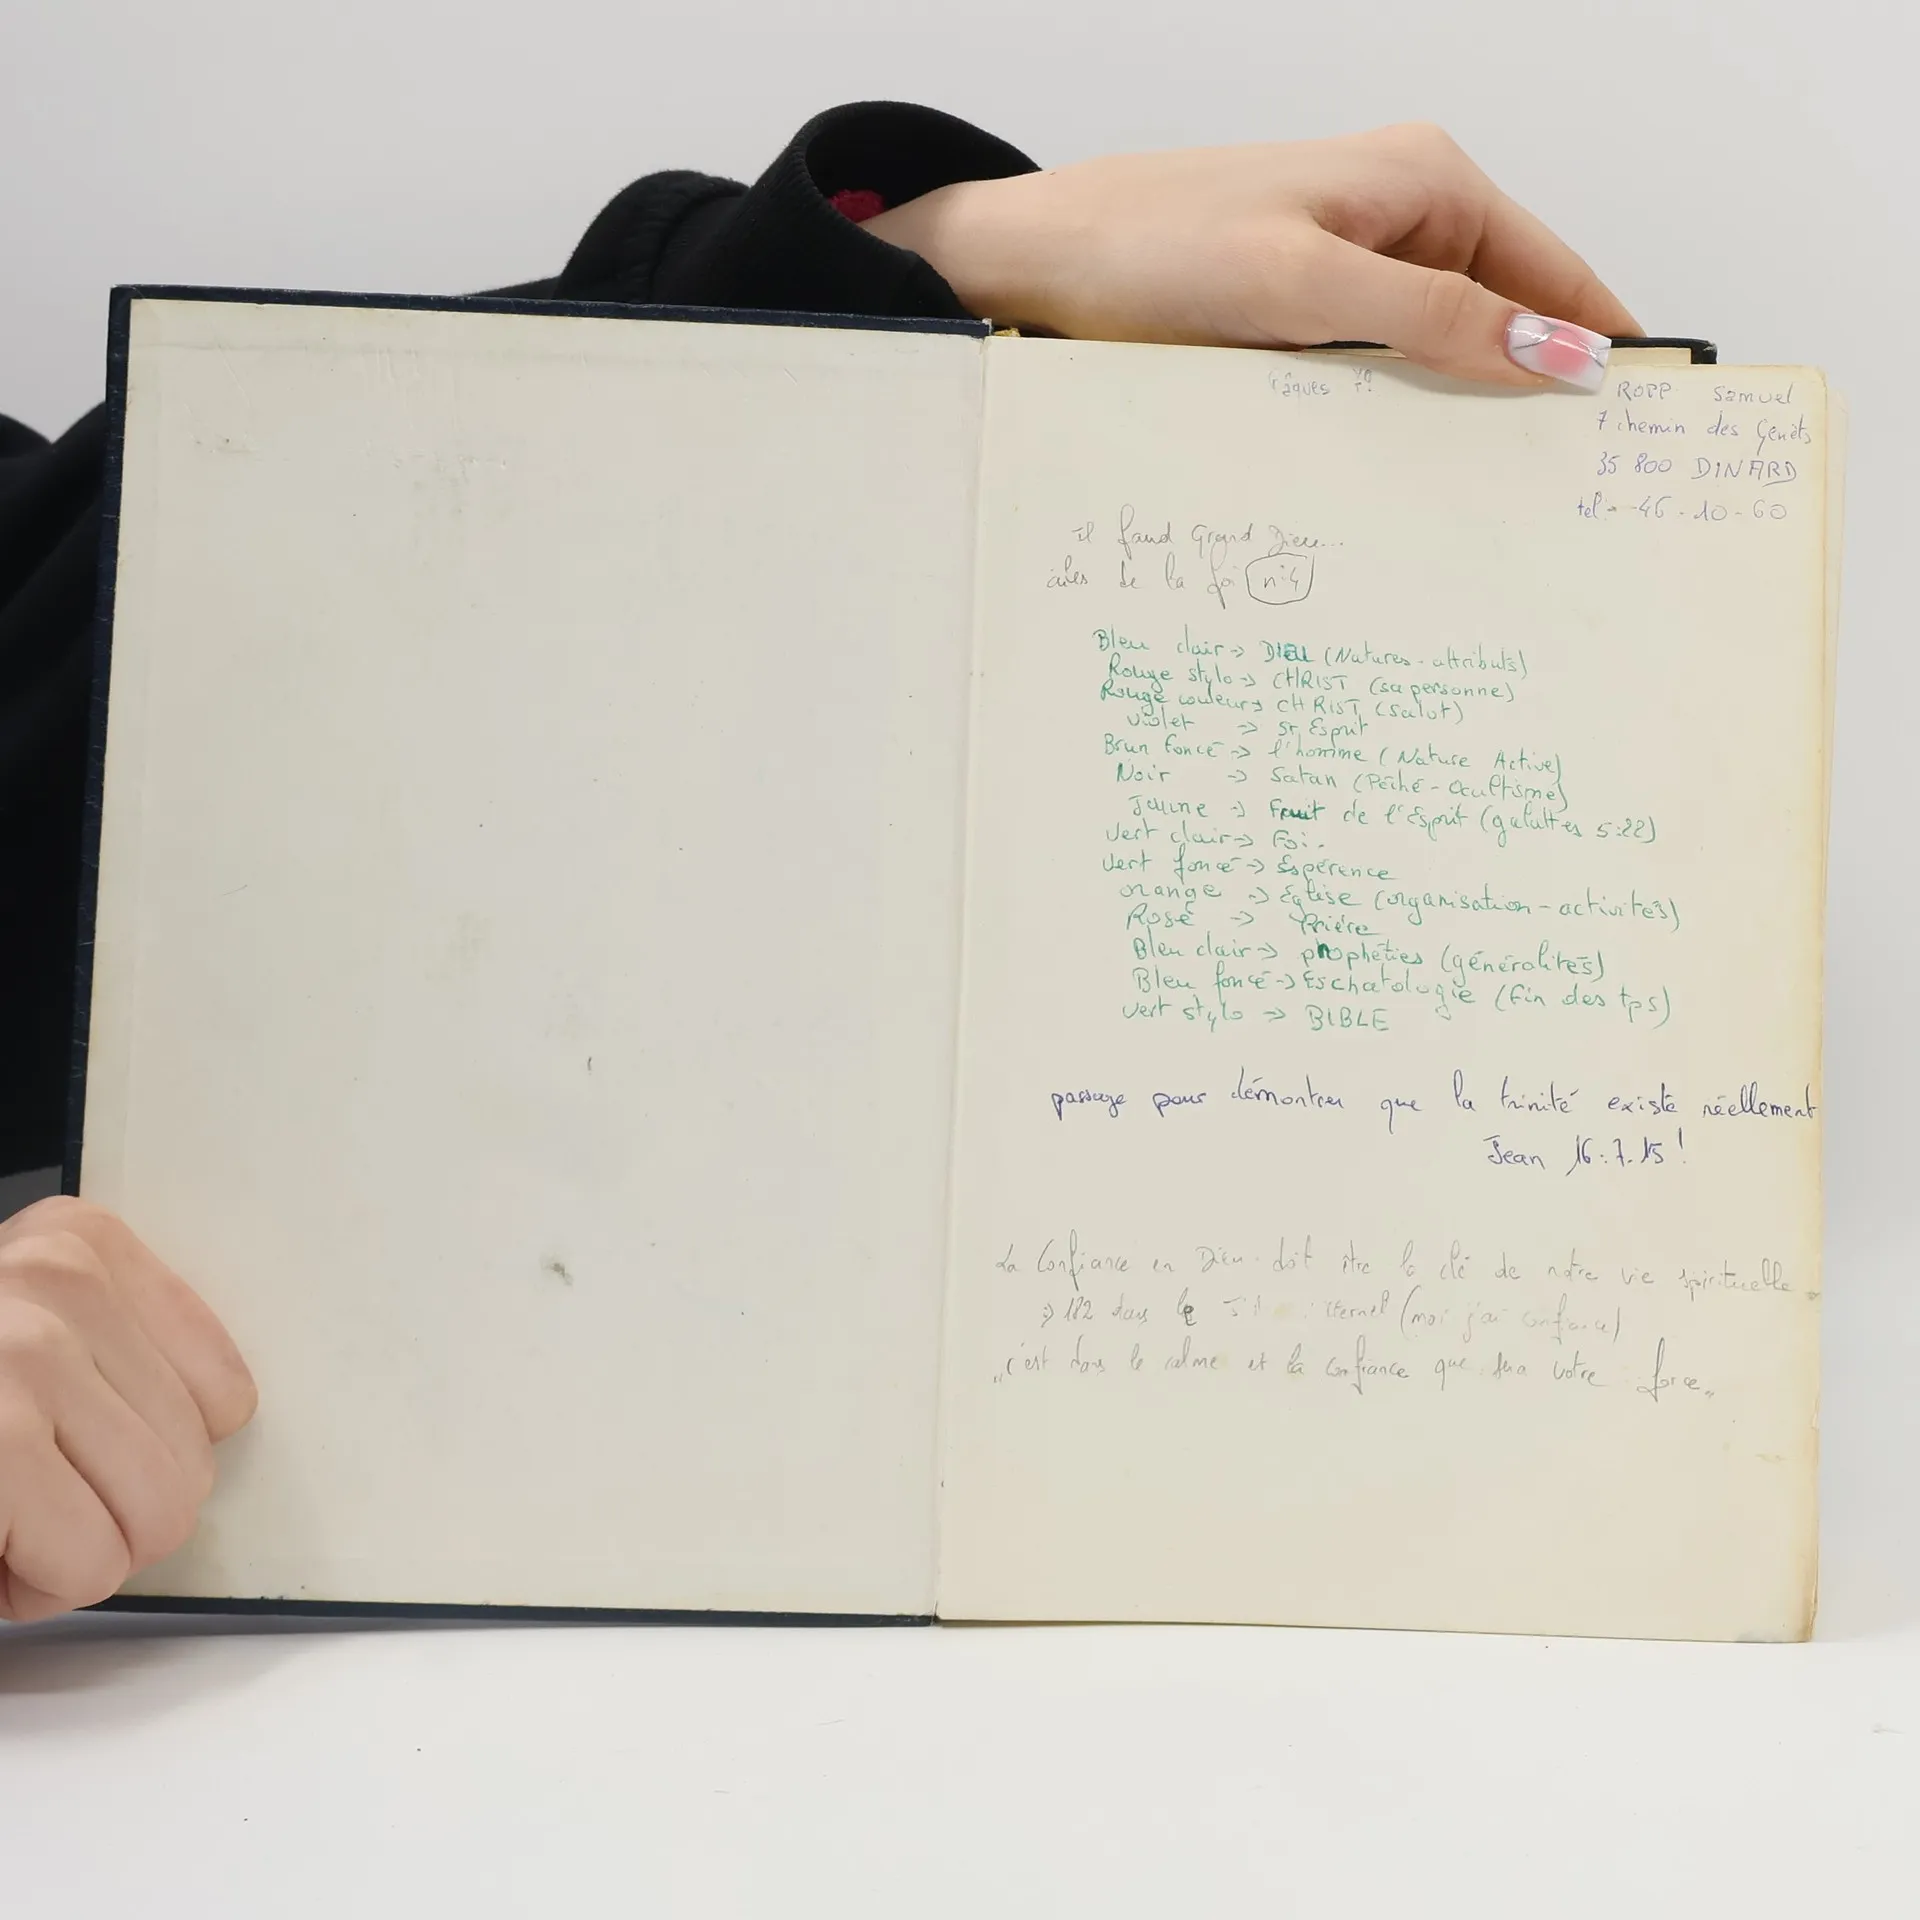 Pâques
ROPP Samuel
7 chemin des Genêts
35 800 DINARD
tel: 46-10-60
il faud Grand Dieu...
ailes de la foi n°4
Bleu clair → DIEU (Natures-attributs)
Rouge stylo → CHRIST (sa personne)
Rouge couleur → CHRIST (Salut)
violet → St Esprit
Brun foncé → l'homme (Nature Active)
Noir → Satan (Péché-Ocultisme)
Jaune → Fruit de l'Esprit (galattes 5:22)
vert clair → Foi.
vert foncé → Espérence
orange → Eglise (organisation-activités)
Rose → Prière
Bleu clair → prophéties (généralités)
Bleu foncé → Eschatologie (fin des tps)
vert stylo → BIBLE
passage pour démontrer que la trinité existe réellement
Jean 16:7.15!
La Confiance en Dieu doit être la clé de notre vie spirituelle
⇒ 182 dans le (moi j'ai confiance)
„c'est dans le calme et la confiance que sera votre force„